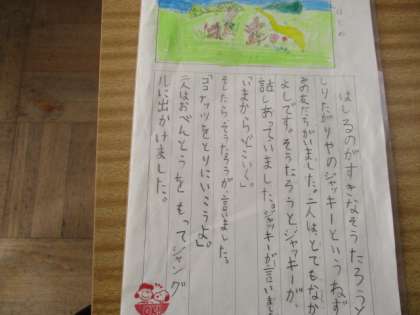 はじめ
はしるのがすきなそうたろうと
しりたがりやのジャッキーというねず
みの友だちがいました。二人は、とてもなか
よしです。そうたろうとジャッキーが、
話しあっていました。ジャッキーが、言いまし
「いまからどこいく。」
そしたら、そうたろうが、言いました。
「ココナッツをとりにいこうよ。」
二人はおべんとうをもってジャング
ルに出かけました。